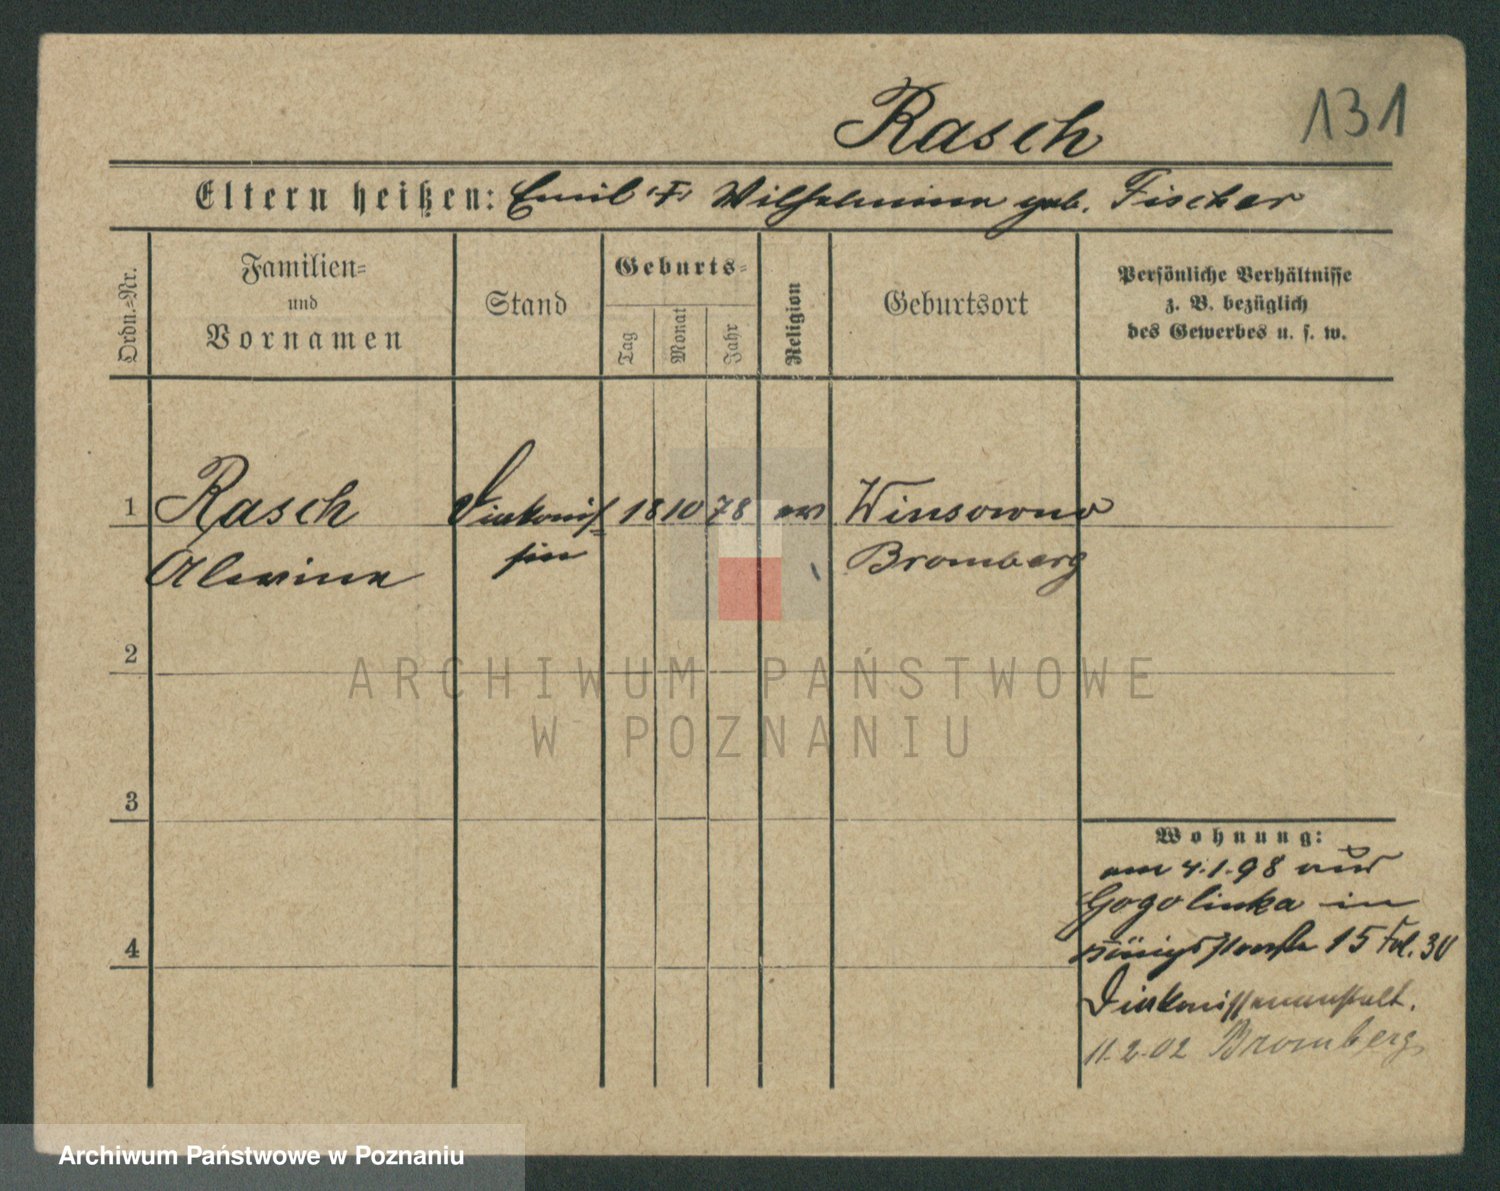 Rasch
131
Eltern heißen: Emil u. Wilhelmine geb. Fischer
Ordn.-Nr.
Familien-
und
Vornamen
Stand
Geburts-
Tag
Monat
Jahr
Religion
Geburtsort
Persönliche Verhältnisse
z. B. bezüglich
des Gewerbes u. s. w.
1
Rasch
Diakonis-
18
10
78
ev
Winsowno
Alwine
sin
Bromberg
2
ARCHIWUM PAŃSTWOWE
W POZNANIU
3
Wohnung:
am 4.1.98 aus
Gogolinka in
Königsstraße 15 Fol. 30
4
Diakonissenanstalt.
11.2.02 Bromberg
Archiwum Państwowe w Poznaniu